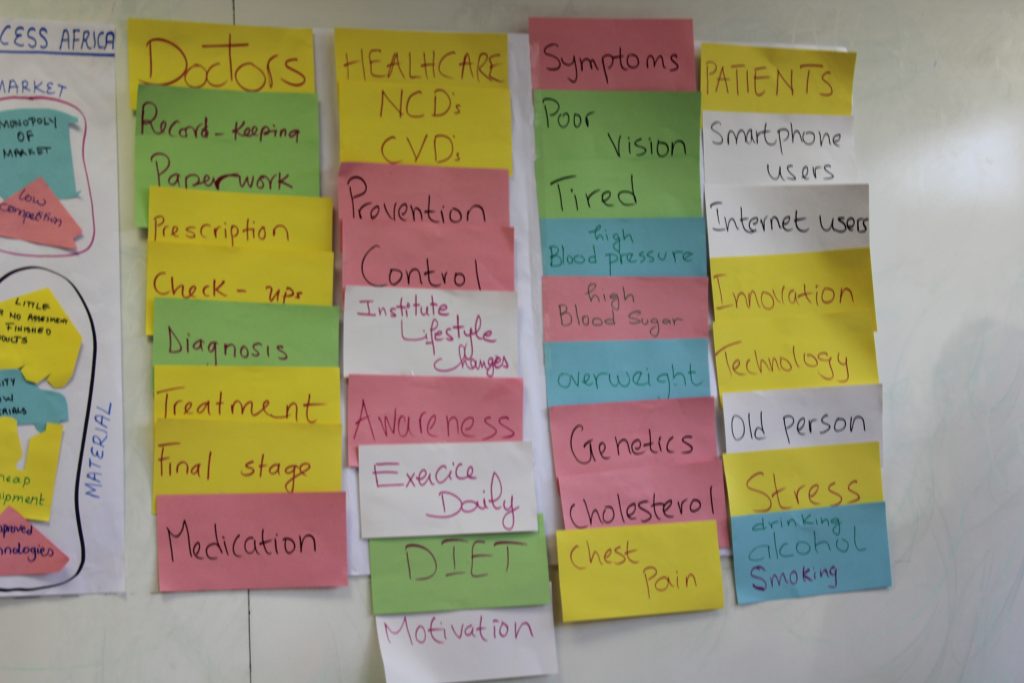 CESS AFRICA
MARKET
MONOPOLY
OF
MARKET
low
competition
LITTLE
NO
FINISHED
MATERIAL
Doctors
Record-keeping
Paperwork
Prescription
Check-ups
Diagnosis
Treatment
Final stage
Medication
HEALHCARE
NCD's
CVD's
Provention
Control
Institute
Lifestyle
Changes
Awareness
Exercice
Daily
DIET
Motivation
Symptoms
Poor
Vision
Tired
high
Blood pressure
high
Blood Sugar
overweight
Genetics
Cholesterol
Chest
Pain
PATIENTS
Smartphone
users
Internet users
Innovation
Technology
Old person
Stress
drinking
alcohol
Smoking